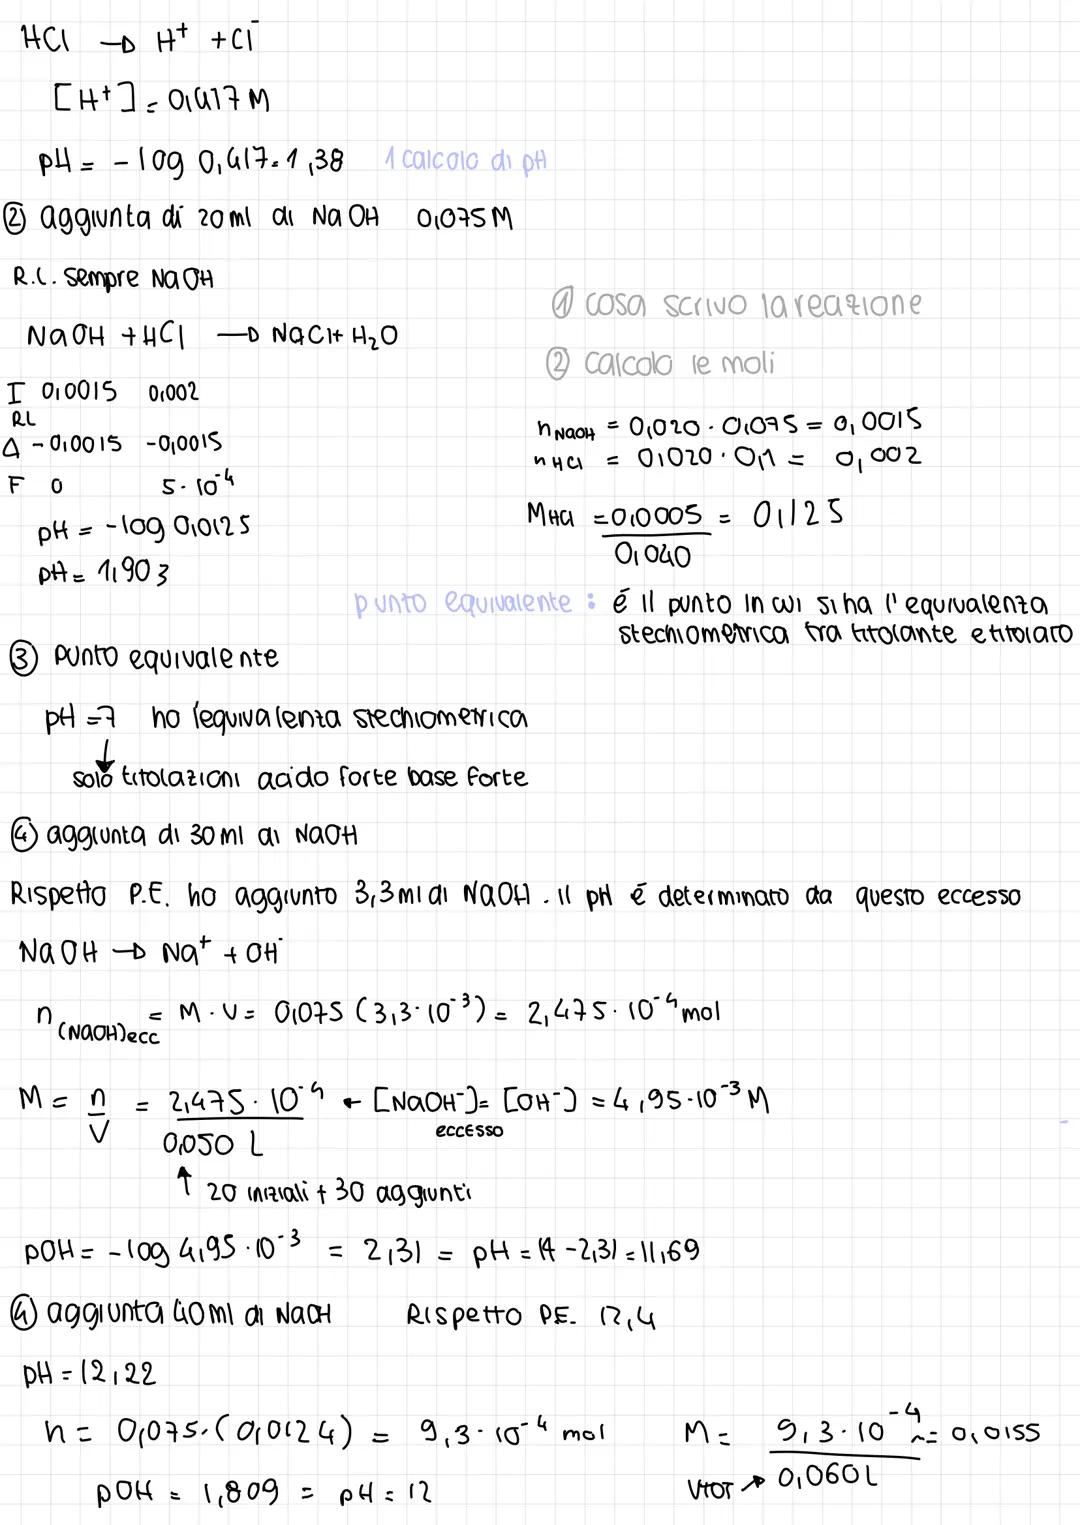 HCl → H⁺ + Cl⁻
[H⁺] = 0,417 M
pH = - log 0,417 = 1,38 1 calcolo di pH
② aggiunta di 20 ml di NaOH 0,075 M
R.C. sempre NaOH
① cosa scrivo la reazione
NaOH + HCl → NaCl + H₂O
② calcolo le moli
I 0,0015 0,002
RL
n NaOH = 0,020 · 0,075 = 0,0015
Δ -0,0015 -0,0015
n HCl = 0,020 · 0,1 = 0,002
F 0 5 · 10⁻⁴
pH = - log 0,0125
M HCl = 0,0005 = 0,125
0,040
pH = 1,903
punto equivalente : é il punto in cui si ha l'equivalenza
stechiometrica fra titolante e titolato
③ punto equivalente
pH = 7 ho l'equivalenza stechiometrica
↓
solo titolazioni acido forte base forte
④ aggiunta di 30 ml di NaOH
Rispetto P.E. ho aggiunto 3,3 ml di NaOH. Il pH é determinato da questo eccesso
NaOH → Na⁺ + OH⁻
n (NaOH)ecc = M · V = 0,075 (3,3 · 10⁻³) = 2,475 · 10⁻⁴ mol
M = n/V = 2,475 · 10⁻⁴ ← [NaOH⁻] = [OH⁻] = 4,95 · 10⁻³ M
0,050 L
eccesso
↑ 20 iniziali + 30 aggiunti
pOH = - log 4,95 · 10⁻³ = 2,31 = pH = 14 - 2,31 = 11,69
④ aggiunta 40 ml di NaOH Rispetto P.E. 12,4
pH = 12,22
n = 0,075 · (0,0124) = 9,3 · 10⁻⁴ mol
M = 9,3 · 10⁻⁴ ~= 0,0155
Vtot → 0,060 L
pOH = 1,809 = pH = 12